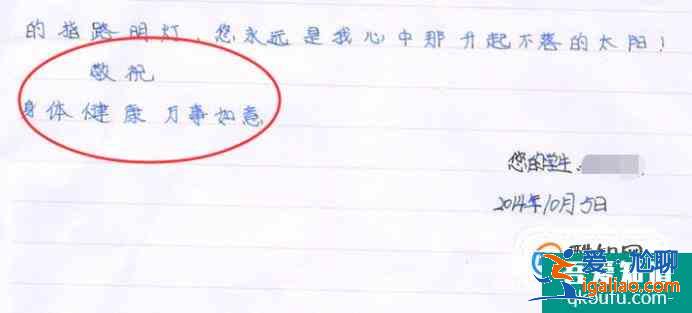 的指路明灯、您永远是我心中那升起不落的太阳！
敬祝
身体健康 万事如意
您的学生:
2014年10月5日
爱尬聊
igaliao.com
qk5ufu.com